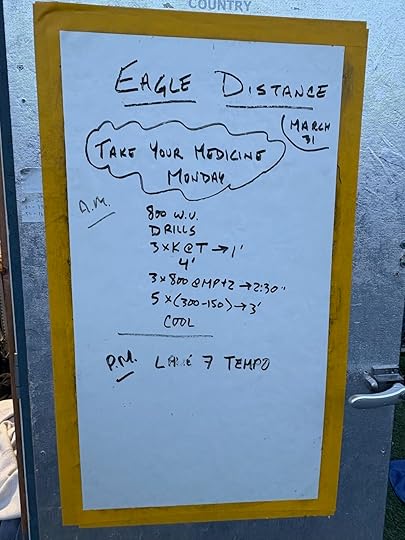 COUNTRY
EAGLE DISTANCE
MARCH
31
TAKE YOUR MEDICINE
MONDAY
A.M.
800 W.U.
DRILLS
3xK@T→1'
4'
3x800@MP+2→2:30"
5x(300-150)→3'
COOL
P.M. LANE 7 TEMPO